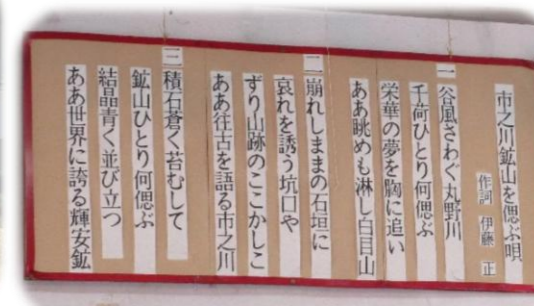 市之川鉱山を偲ぶ唄
作詞 伊藤 正
一
谷風さわぐ丸野川
千荷ひとり何偲ぶ
栄華の夢を胸に追い
ああ眺めも淋し白目山
二
崩れしままの石垣に
哀れを誘う坑口や
ずり山跡のここかしこ
ああ往古を語る市之川
三
積石蒼く苔むして
鉱山ひとり何偲ぶ
結晶青く並び立つ
ああ世界に誇る輝安鉱